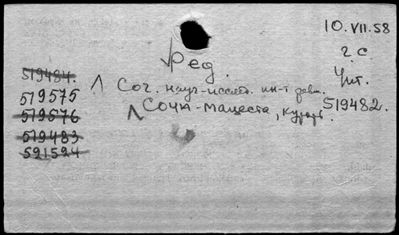 10.VII.58
Ред.
г с
Чит.
519484.
519575
519576
519483
591594
Соч. науч-исслед. ин-т
Сочи-Мацеста, Курорт
519482.